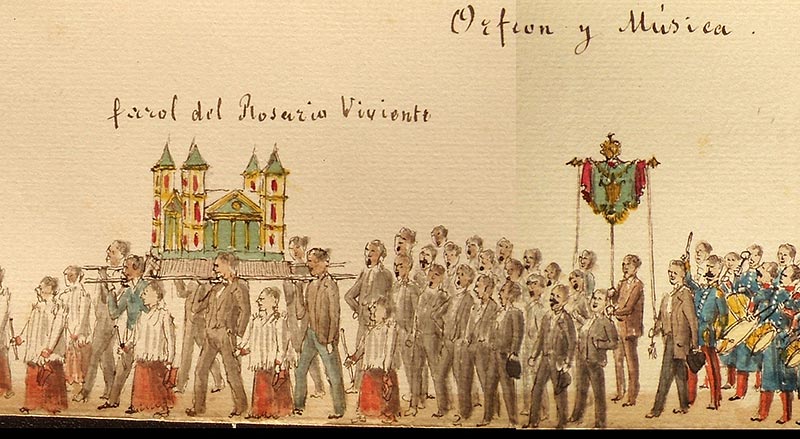 Orfeon y Música.
farol del Rosario Viviente